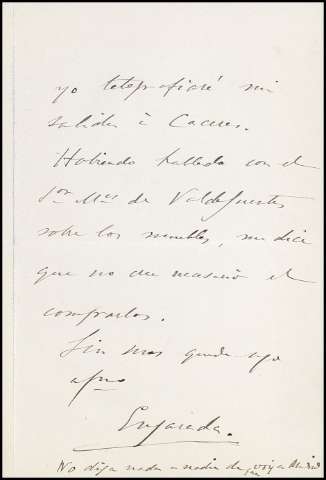 yo telegrafiaré mi
salida à Caceres.
Habiendo hallado con el
Sor. Mqs de Valdefuentes
sobre los muebles, me dice
que no era necesario el
comprarlos.
Sin mas queda suyo
afmo
Enjarada.
No diga nada a nadie de que voy a Madrid